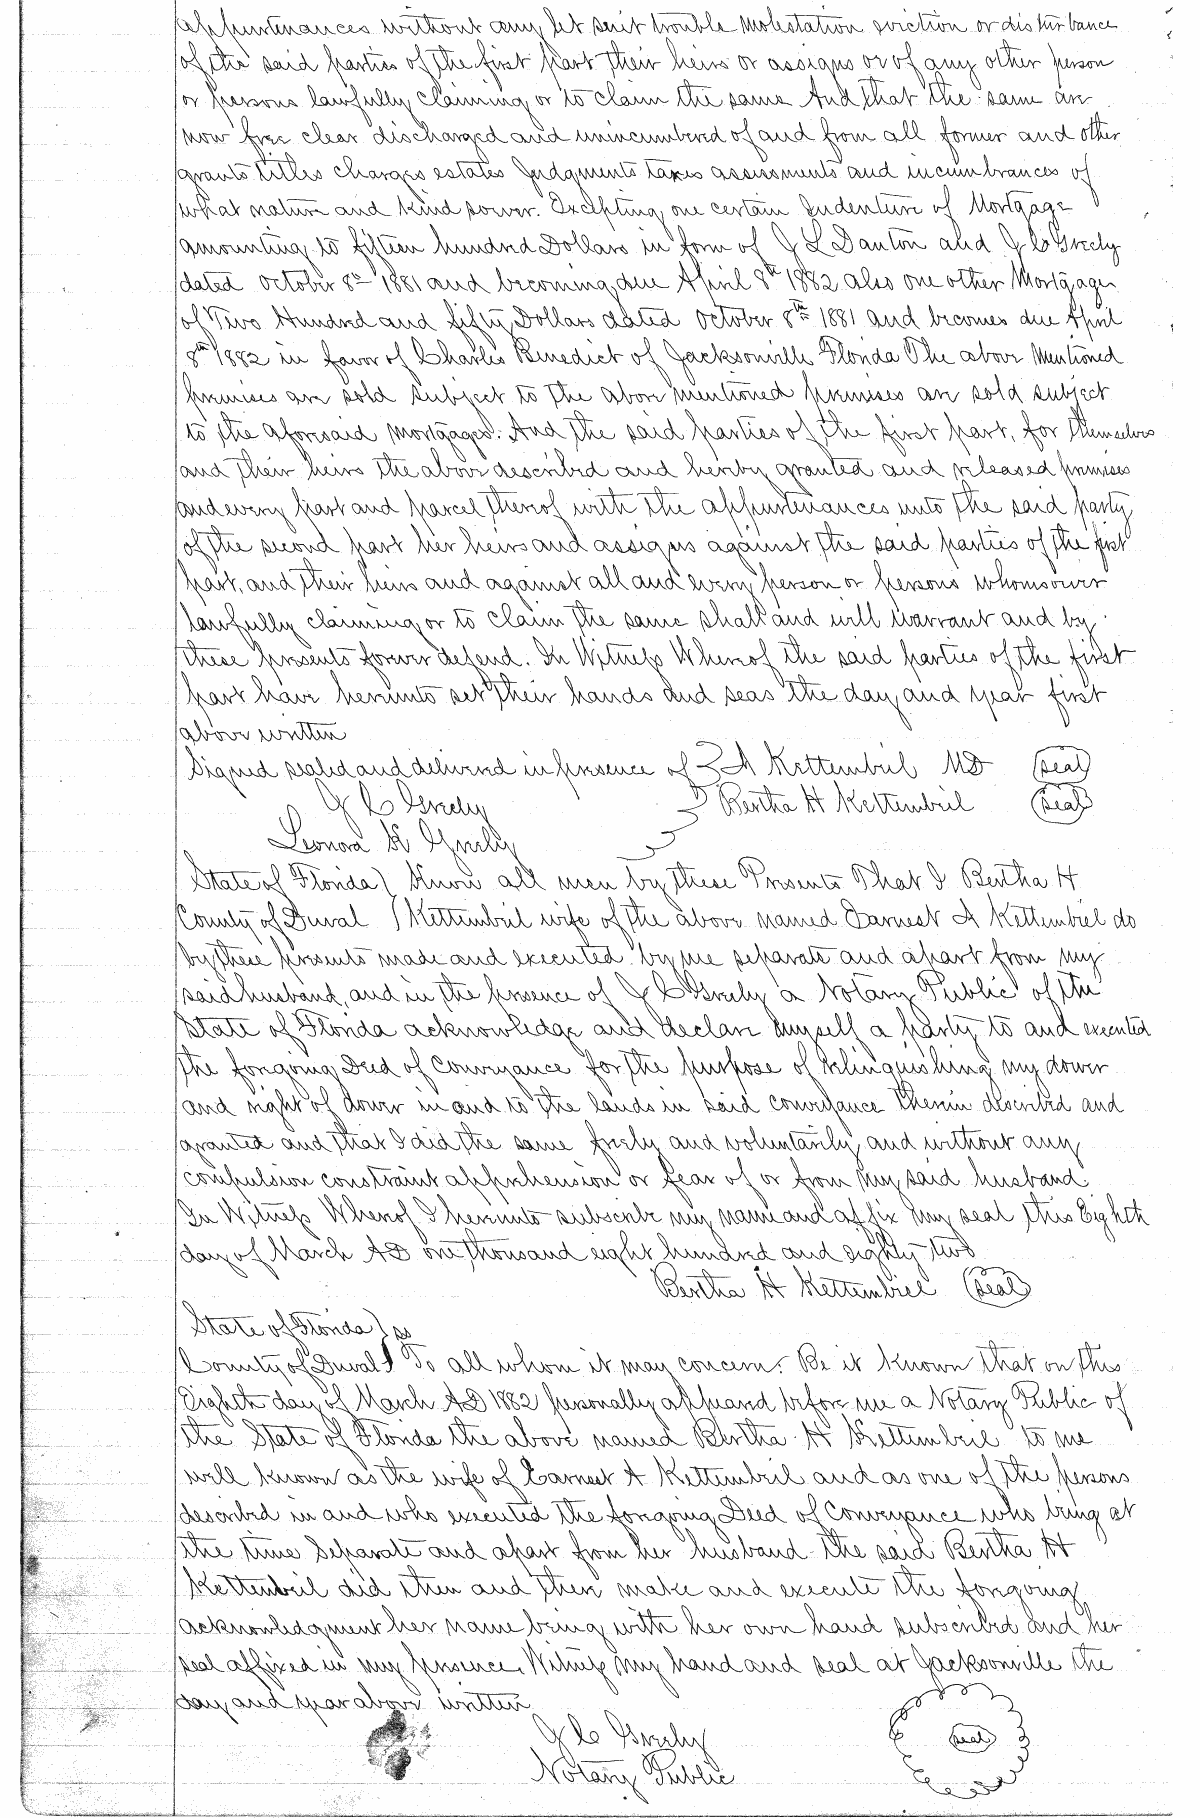 appurtenances without any let suit trouble molestation eviction or disturbance
of the said parties of the first part their heirs or assigns or of any other person
or persons lawfully claiming or to claim the same And that the same are
now free clear discharged and unincumbered of and from all former and other
grants titles charges estates Judgments taxes assessments and incumbrances of
what nature and kind soever. Excepting one certain Indenture of Mortgage
amounting to fifteen hundred Dollars in form of J L Danton and J C Greely
dated October 8th 1881 and becoming due April 8th 1882 also one other Mortgage
of Two Hundred and fifty Dollars dated October 8th 1881 and becomes due April
8th 1882 in favor of Charles Benedict of Jacksonville Florida The above Mentioned
premises are sold subject to the above mentioned premises are sold subject
to the aforesaid mortgages. And the said parties of the first part, for themselves
and their heirs the above described and hereby granted and released premises
and every part and parcel thereof with the appurtenances unto the said party
of the second part her heirs and assigns against the said parties of the first
part, and their heirs and against all and every person or persons whomsoever
lawfully claiming or to claim the same shall and will warrant and by
these presents forever defend. In Witness Whereof the said parties of the first
part have hereunto set their hands and seas the day and year first
above written
Signed sealed and delivered in presence of E A Kettembeil MD (seal)
J C Greely Bertha H Kettembeil (seal)
Leonora K Greely
State of Florida) Know all men by these Presents That I Bertha H
County of Duval ) Kettembeil wife of the above named Earnest A Kettembeil do
by these presents made and executed by me separate and apart from my
said husband, and in the presence of J C Greely a Notary Public of the
State of Florida acknowledge and declare myself a party to and executed
the foregoing Deed of Conveyance for the purpose of relinquishing my dower
and right of dower in and to the lands in said conveyance therein described and
granted and that I did the same freely and voluntarily and without any
compulsion constraint apprehension or fear of or from my said husband
In Witness Whereof I hereunto subscribe my name and affix my seal this Eighth
day of March AD one thousand eight hundred and eighty-two
Bertha H Kettembeil (seal)
State of Florida ) ss
County of Duval ) To all whom it may concern. Be it known that on this
Eighth day of March AD 1882 personally appeared before me a Notary Public of
the State of Florida the above named Bertha H Kettembeil to me
well known as the wife of Earnest A Kettembeil and as one of the persons
described in and who executed the foregoing Deed of Conveyance who being at
the time Separate and apart from her husband the said Bertha H
Kettembeil did then and there make and execute the foregoing
acknowledgment her name being with her own hand subscribed and her
seal affixed in my presence. Witness my hand and seal at Jacksonville the
day and year above written
J C Greely (seal)
Notary Public